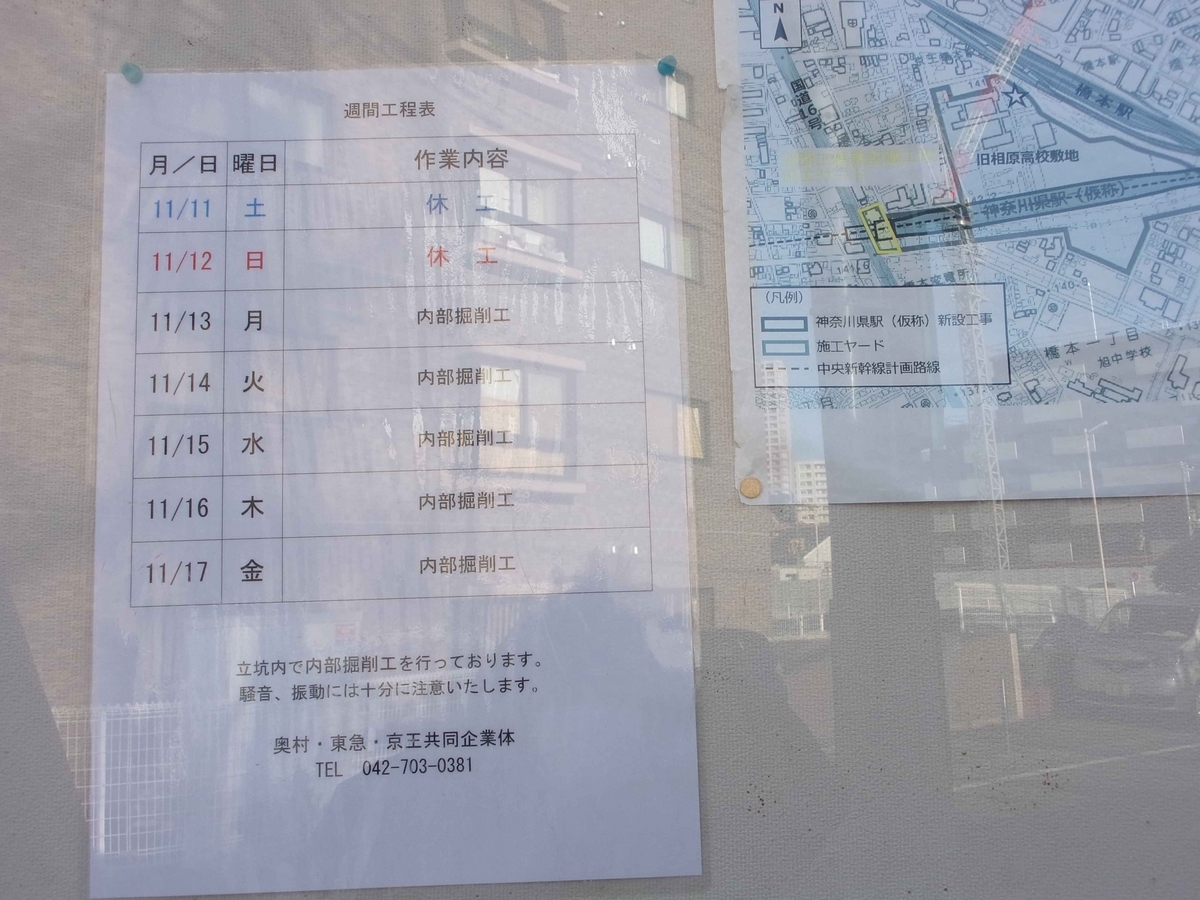 週間工程表
月／日 曜日 作業内容
11/11 土 休 工
11/12 日 休 工
11/13 月 内部掘削工
11/14 火 内部掘削工
11/15 水 内部掘削工
11/16 木 内部掘削工
11/17 金 内部掘削工
立坑内で内部掘削工を行っております。
騒音、振動には十分に注意いたします。
奥村・東急・京王共同企業体
TEL 042-703-0381
N
国道16号
橋本駅
旧相原高校敷地
神奈川県駅（仮称）
（凡例）
神奈川県駅（仮称）新設工事
施工ヤード
中央新幹線計画路線
140-9
橋本二丁目
旭中学校